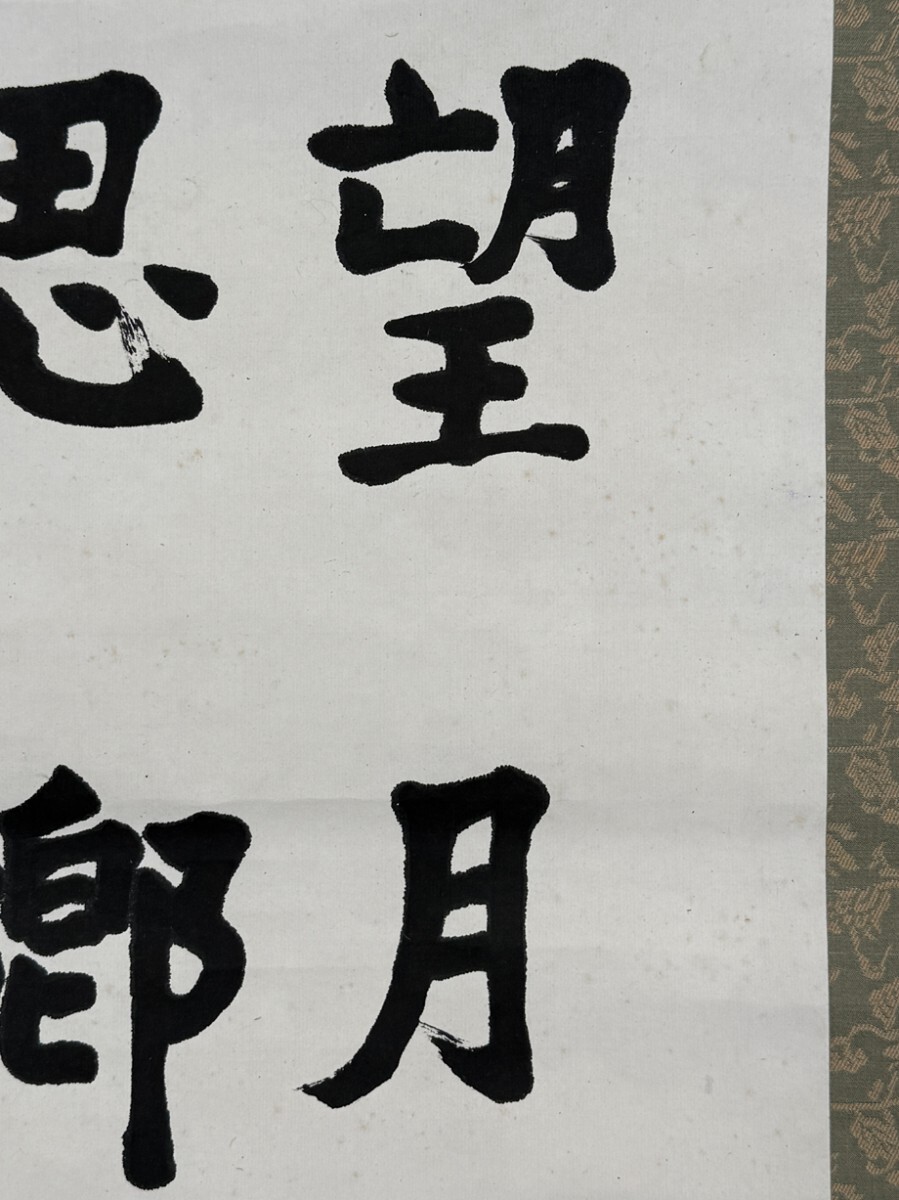 望月
思鄉